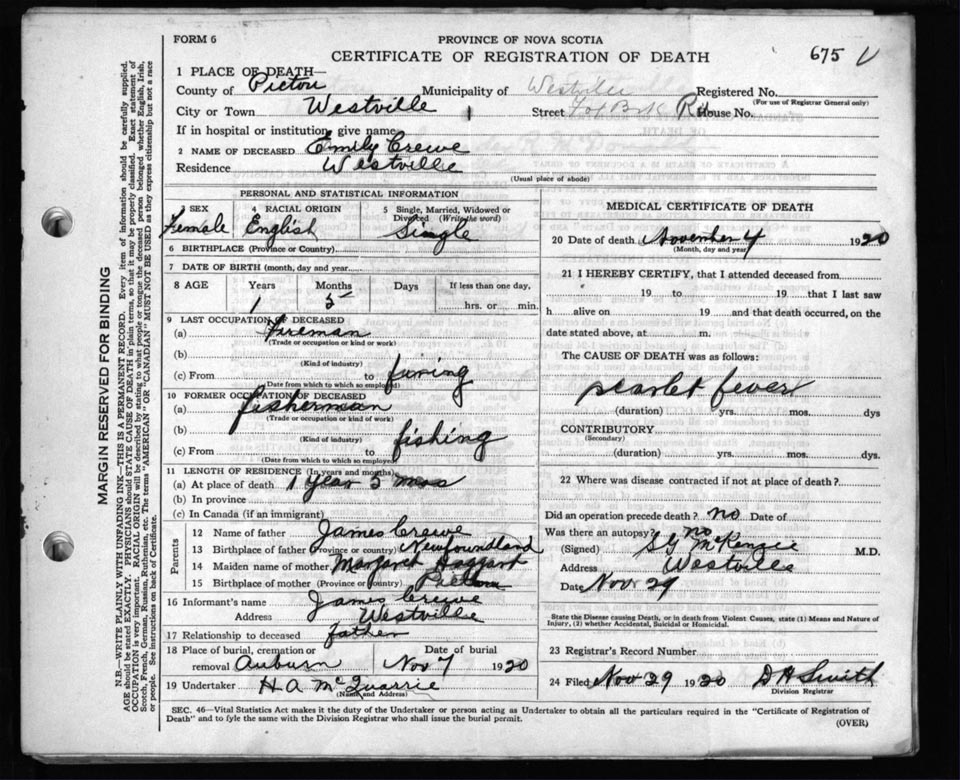 FORM 6
PROVINCE OF NOVA SCOTIA
CERTIFICATE OF REGISTRATION OF DEATH
675
1 PLACE OF DEATH—
County of Pictou Municipality of Westville Registered No.
(For use of Registrar General only)
City or Town Westville Street House No.
If in hospital or institution, give name
2 NAME OF DECEASED Emily Crewe
Residence Westville
(Usual place of abode)
PERSONAL AND STATISTICAL INFORMATION
3 SEX Female
4 RACIAL ORIGIN English
5 Single, Married, Widowed or Divorced (Write the word) Single
6 BIRTHPLACE (Province or Country)
7 DATE OF BIRTH (month, day and year)
8 AGE Years 1 Months 5 Days If less than one day, hrs. or min.
9 LAST OCCUPATION OF DECEASED
(a) Fireman
(Trade or occupation or kind of work)
(b)
(Kind of industry)
(c) From to firing
(Date from which to which so employed)
10 FORMER OCCUPATION OF DECEASED
(a) fisherman
(Trade or occupation or kind of work)
(b)
(Kind of industry)
(c) From to fishing
(Date from which to which so employed)
11 LENGTH OF RESIDENCE (In years and months)
(a) At place of death 1 Year 5 mos
(b) In province
(c) In Canada (if an immigrant)
Parents
12 Name of father James Crewe
13 Birthplace of father (Province or country) Newfoundland
14 Maiden name of mother Margaret Haggart
15 Birthplace of mother (Province or country) Pictou
16 Informant's name James Crewe
Address Westville
17 Relationship to deceased father
18 Place of burial, cremation or removal Auburn Date of burial Nov 7 1920
19 Undertaker H. A. McQuarrie
(Name and Address)
MEDICAL CERTIFICATE OF DEATH
20 Date of death November 4 1920
(Month, day and year)
21 I HEREBY CERTIFY, that I attended deceased from
19 to 19 that I last saw
h alive on 19 and that death occurred, on the
date stated above, at m.
The CAUSE OF DEATH was as follows:
scarlet fever
(duration) yrs. mos. dys
CONTRIBUTORY
(Secondary)
(duration) yrs. mos. dys.
22 Where was disease contracted if not at place of death?
Did an operation precede death? no Date of
Was there an autopsy? no
(Signed) S G McKenzie M.D.
Address Westville
Date Nov 29
State the Disease causing Death, or in death from Violent Causes, state (1) Means and Nature of Injury, (2) whether Accidental, Suicidal or Homicidal.
23 Registrar's Record Number
24 Filed Nov 29 1920 D H Smith
Division Registrar
SEC. 46—Vital Statistics Act makes it the duty of the Undertaker or person acting as Undertaker to obtain all the particulars required in the "Certificate of Registration of
Death" and to fyle the same with the Division Registrar who shall issue the burial permit.
(OVER)
MARGIN RESERVED FOR BINDING
N.B.—WRITE PLAINLY WITH UNFADING INK—THIS IS A PERMANENT RECORD. Every item of information should be carefully supplied.
AGE should be stated EXACTLY. PHYSICIANS should STATE CAUSE OF DEATH in plain terms, so that it may be properly classified. Exact statement of
OCCUPATION is very important. RACIAL ORIGIN will be described by stating to what people or tongue the deceased person belonged whether English, Irish,
Scotch, French, German, Russian, Ruthenian, etc. The terms "AMERICAN" OR "CANADIAN" MUST NOT BE USED as they express citizenship but not a race
or people. See instructions on back of Certificate.